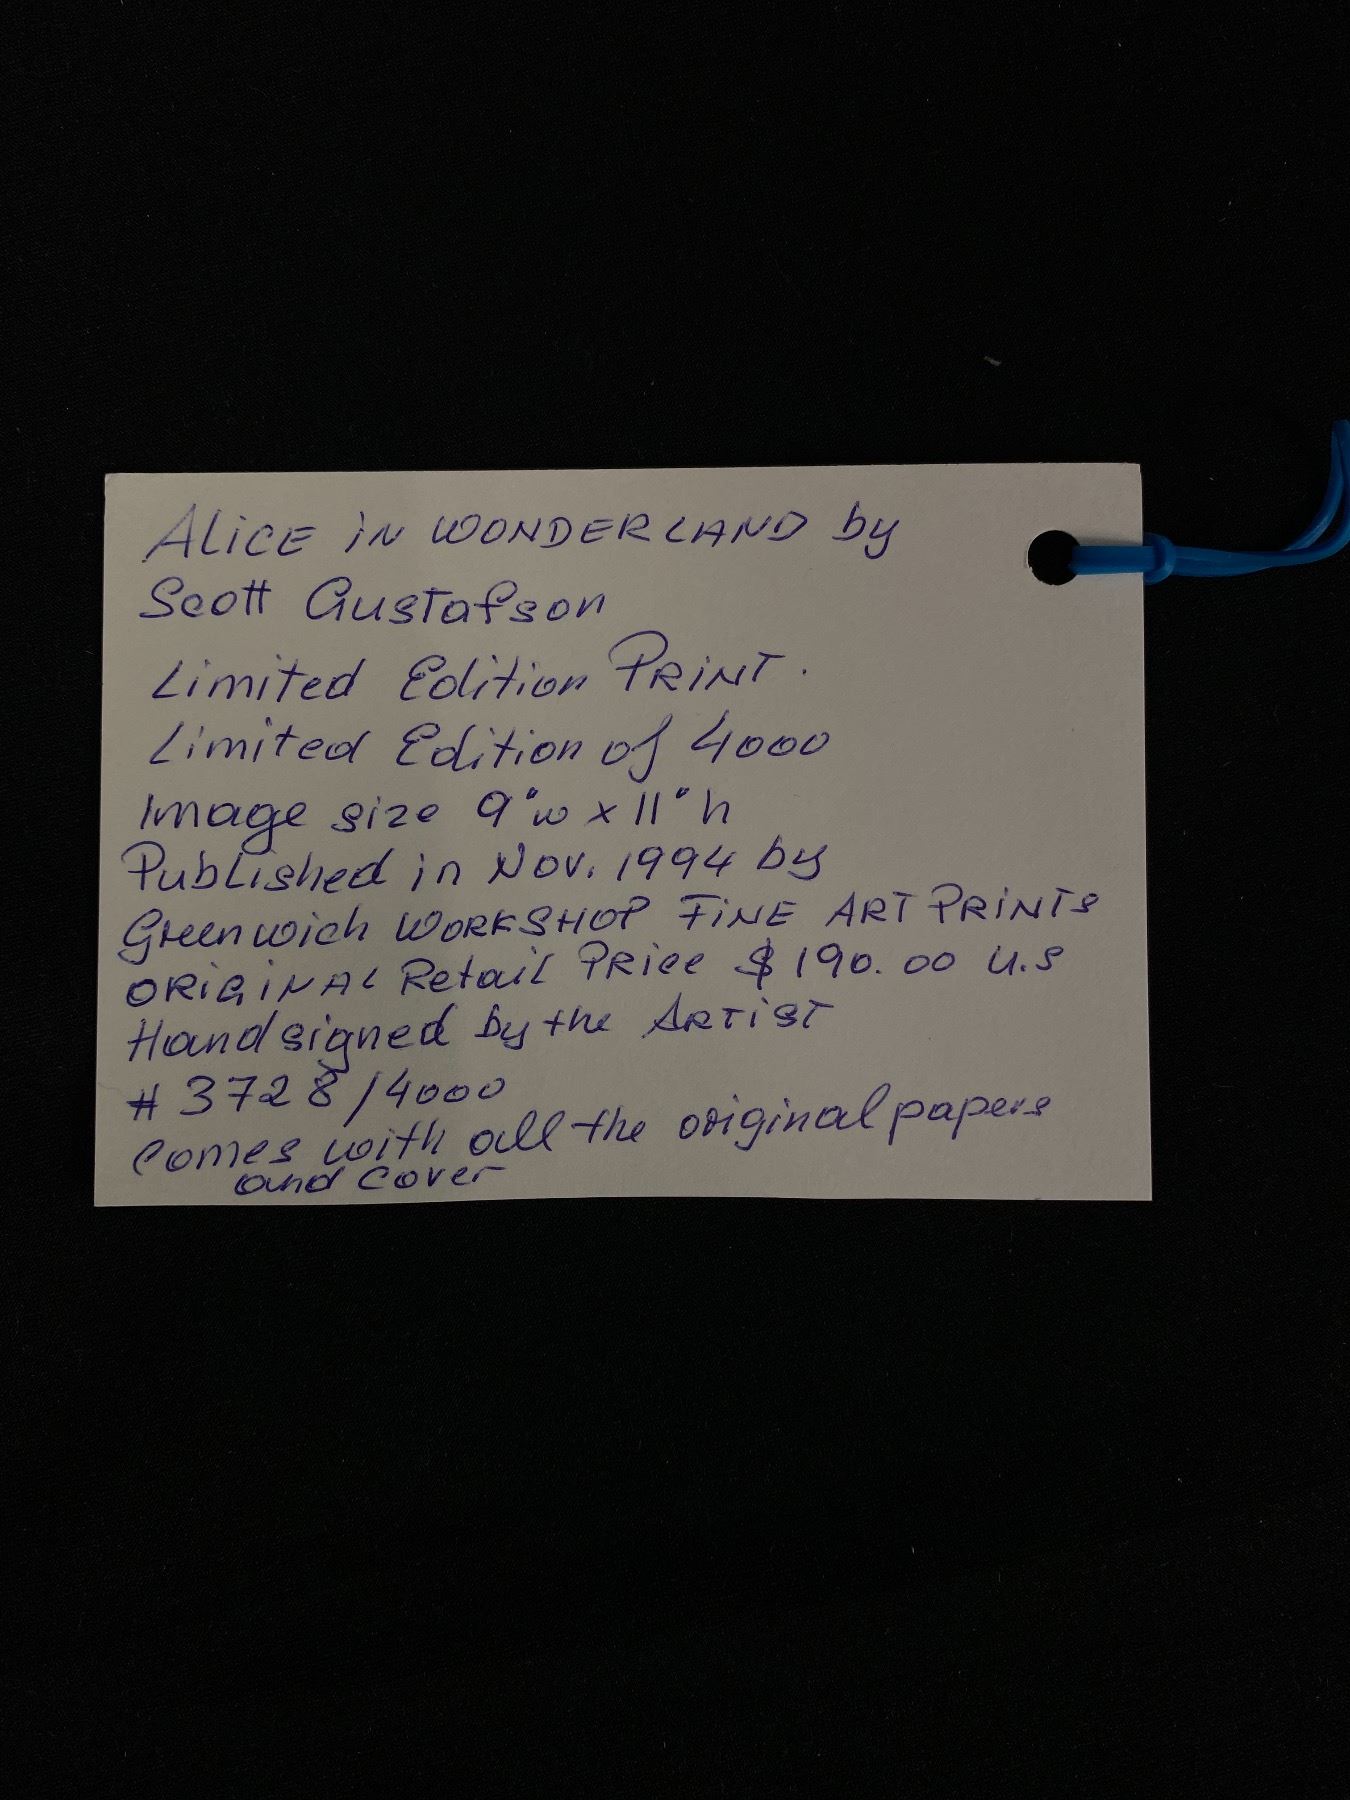 ALiCE iN WONDERLAND by
Scott Gustafson
Limited Edition PRiNT.
Limited Edition of 4000
Image size 9"w x 11"h
Published in Nov. 1994 by
Greenwich WORKSHOP FiNE ART PRiNTS
ORiGiNAL Retail PRice $190.00 U.S
Hand signed by the ARTiST
# 3728/4000
comes with all the original papers
and cover